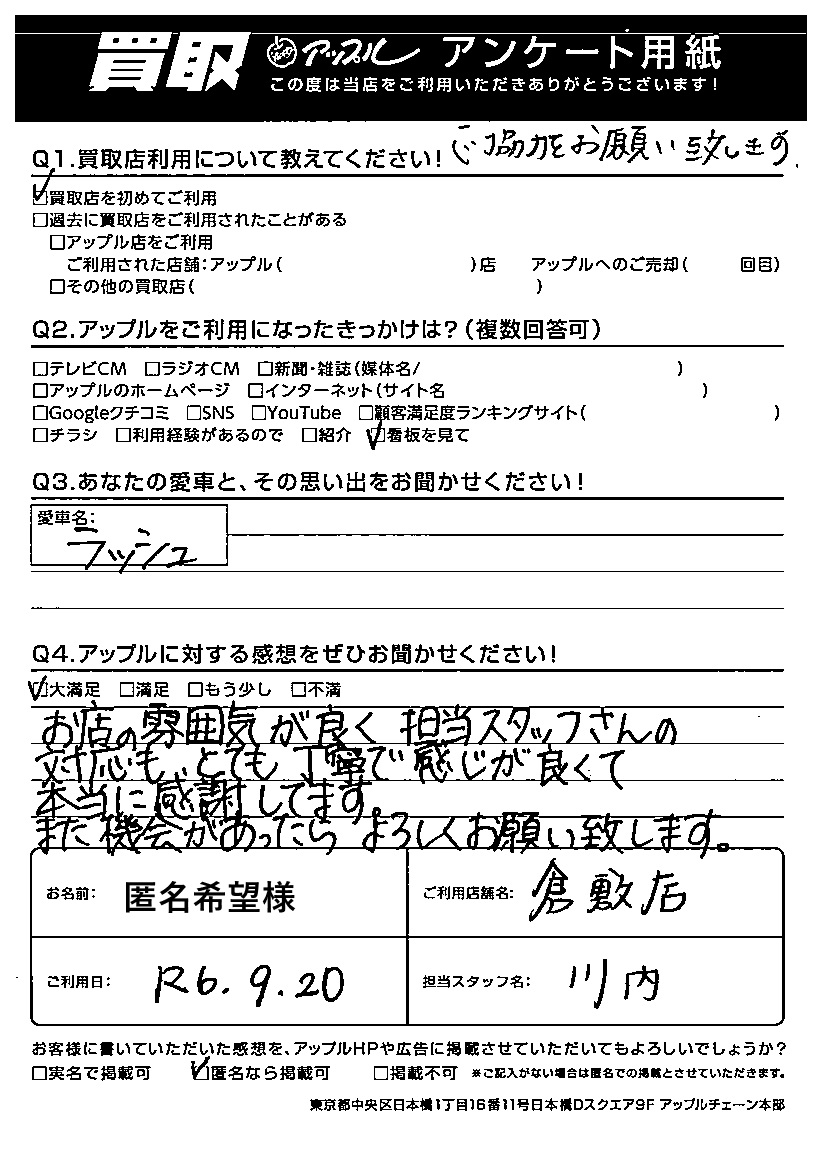 買取 アップル アンケート用紙
この度は当店をご利用いただきありがとうございます!
ご協力をお願い致します。
Q1.買取店利用について教えてください!
☑買取店を初めてご利用
□過去に買取店をご利用されたことがある
□アップル店をご利用
ご利用された店舗:アップル( )店 アップルへのご売却( 回目)
□その他の買取店( )
Q2.アップルをご利用になったきっかけは?(複数回答可)
□テレビCM □ラジオCM □新聞・雑誌(媒体名/ )
□アップルのホームページ □インターネット(サイト名 )
□Googleクチコミ □SNS □YouTube □顧客満足度ランキングサイト( )
□チラシ □利用経験があるので □紹介 ☑看板を見て
Q3.あなたの愛車と、その思い出をお聞かせください!
愛車名:
ラッシュ
Q4.アップルに対する感想をぜひお聞かせください!
☑大満足 □満足 □もう少し □不満
お店の雰囲気が良く 担当スタッフさんの
対応も、とても丁寧で感じが良くて
本当に感謝してます。
また機会があったら よろしくお願い致します。
お名前: 匿名希望様 ご利用店舗名: 倉敷店
ご利用日: R6.9.20 担当スタッフ名: 川内
お客様に書いていただいた感想を、アップルHPや広告に掲載させていただいてもよろしいでしょうか?
□実名で掲載可 ☑匿名なら掲載可 □掲載不可 ※ご記入がない場合は匿名での掲載とさせていただきます。
東京都中央区日本橋1丁目16番11号日本橋Dスクエア9F アップルチェーン本部